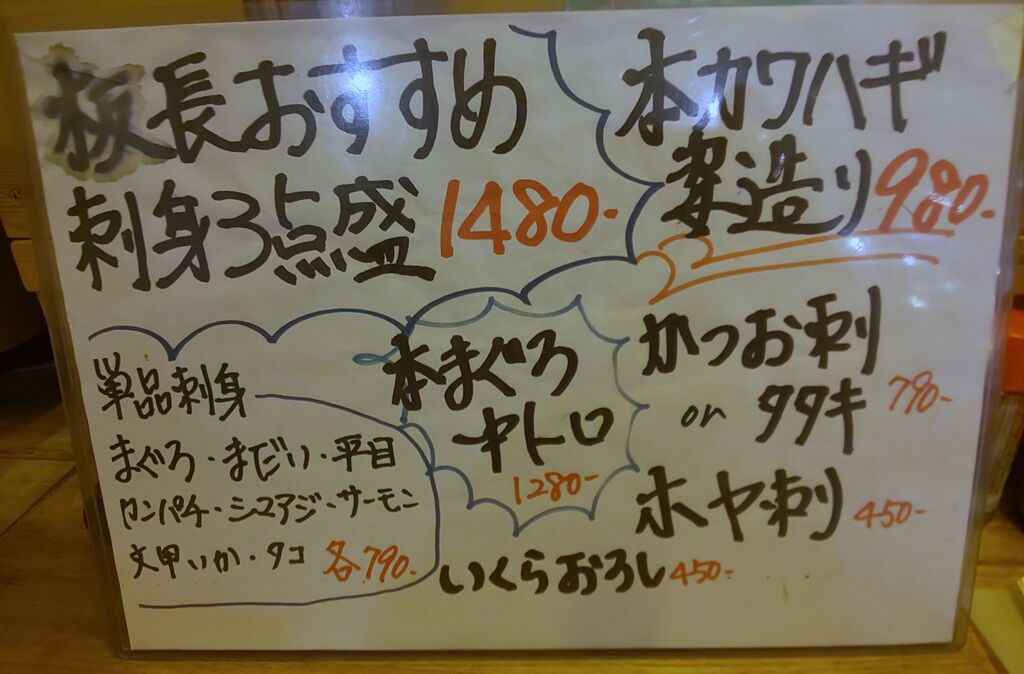 板長おすすめ
刺身3点盛 1480-
本カワハギ
姿造り 980-
単品刺身
まぐろ・まだい・平目
カンパチ・シマアジ・サーモン
文甲いか・タコ 各790-
本まぐろ
中トロ
1280-
かつお刺
or タタキ 790-
ホヤ刺 450-
いくらおろし 450-